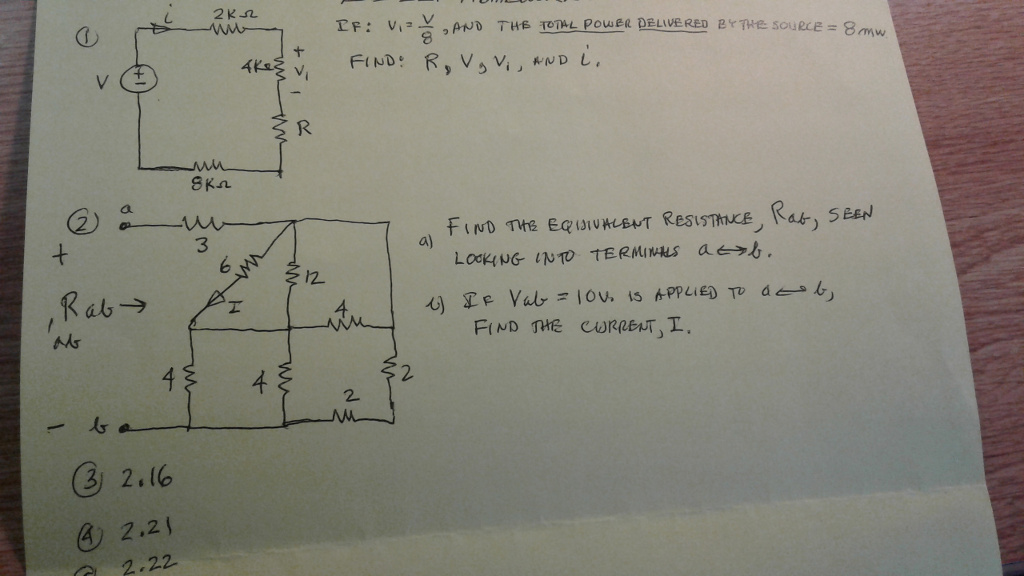 ① i 2KΩ
V 4KΩ + V₁ - R
8KΩ
IF: V₁ = V/8, AND THE TOTAL POWER DELIVERED BY THE SOURCE = 8 mW
FIND: R, V, V₁, AND i.
② a 3
+ 6 12
Rab → I 4
ab
4 4 2
2
- b
a) FIND THE EQUIVALENT RESISTANCE, Rab, SEEN
LOOKING INTO TERMINALS a↔b.
b) IF Vab = 10V. IS APPLIED TO a↔b,
FIND THE CURRENT, I.
③ 2.16
④ 2.21
2.22